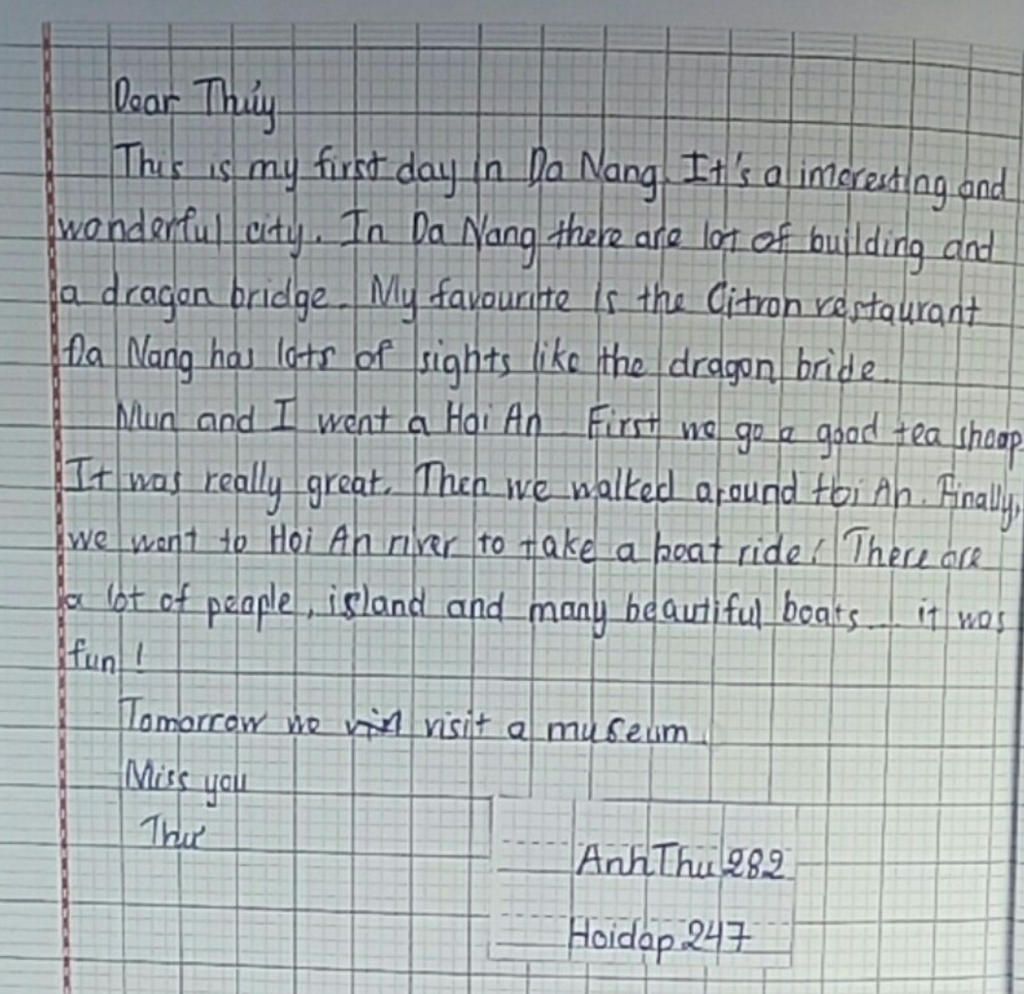 Dear Thúy
This is my first day in Da Nang. It's a interesting and
wonderful city. In Da Nang there are lot of building and
a dragon bridge. My favourite is the Citron restaurant
Da Nang has lots of sights like the dragon bride.
Mun and I went a Hoi An First we go a good tea shoap.
It was really great. Then we walked around Hoi An. Finally,
we went to Hoi An river to take a boat ride! There are
a lot of people, island and many beautiful boats. it was
fun!
Tomorrow we visit a museum.
Miss you
Thư
AnhThu 282
Hoidap 247